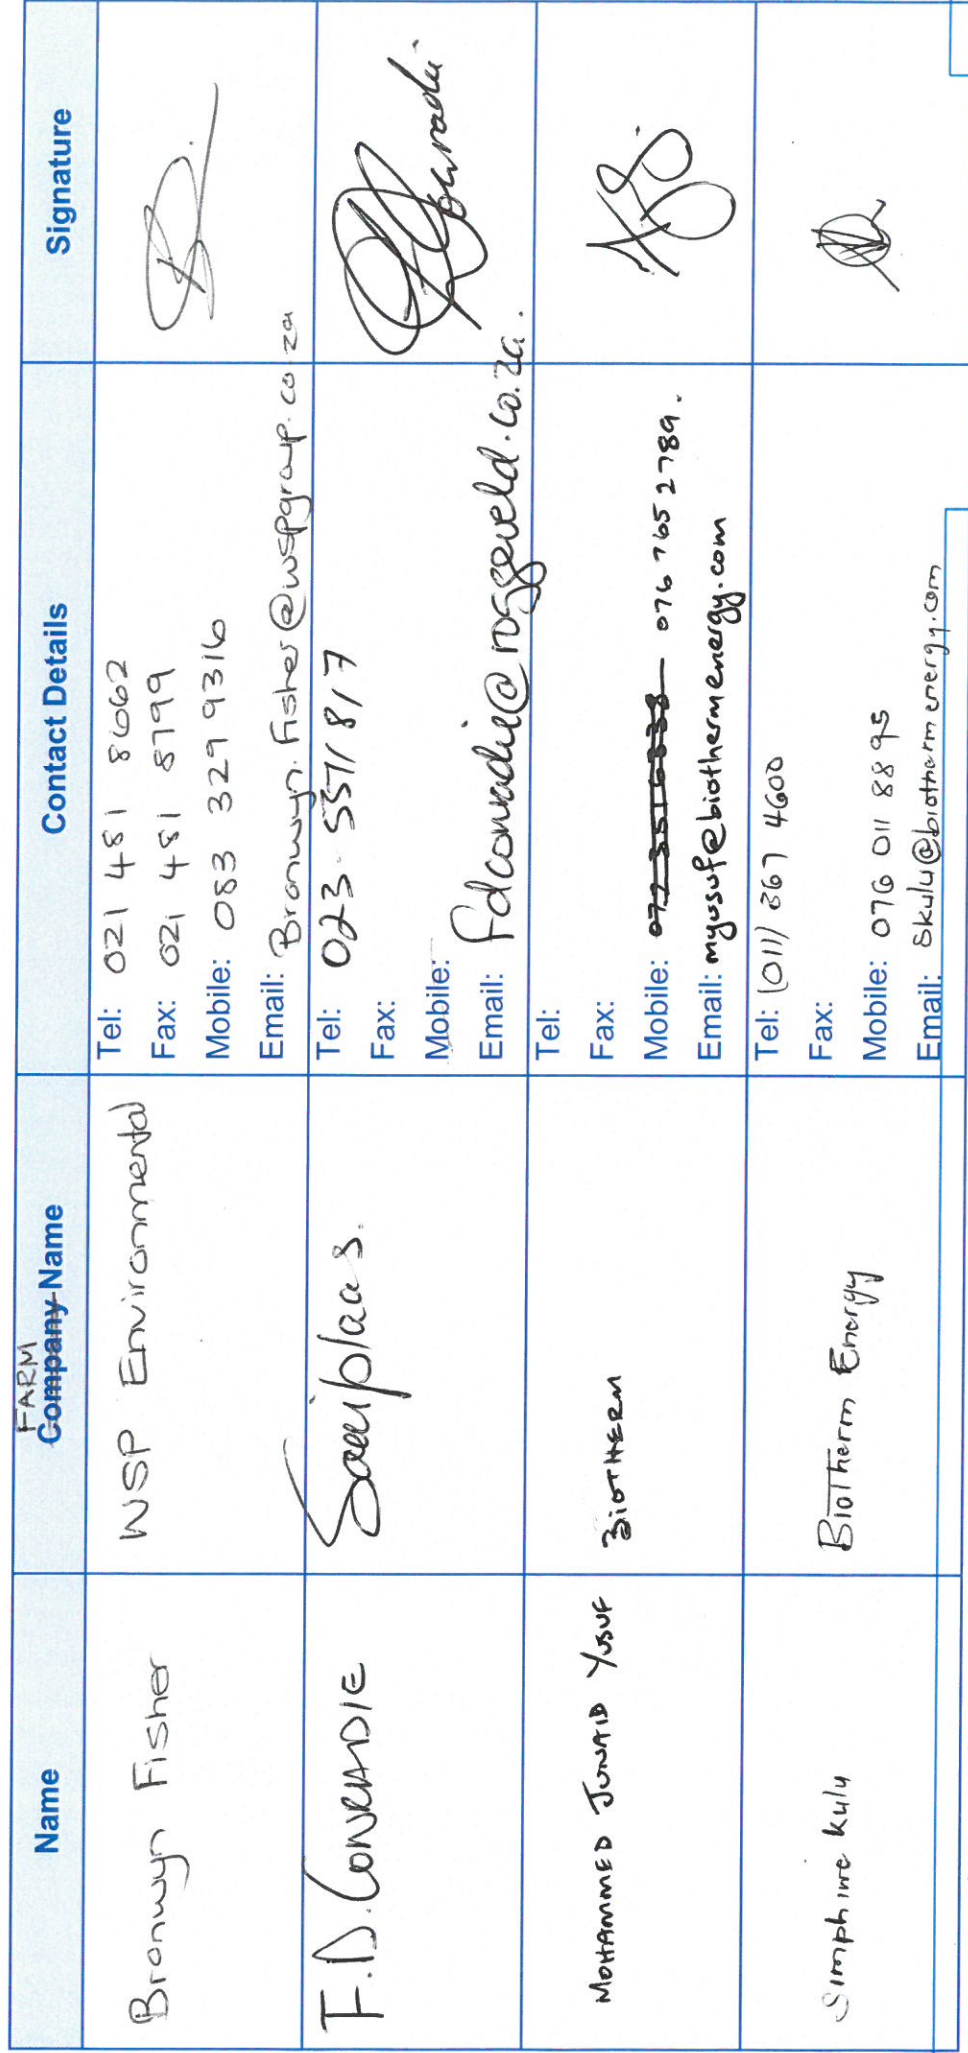 Name
FARM
Company Name
Contact Details
Signature
Bronwyn Fisher
WSP Environmental
Tel: 021 481 8662
Fax: 021 481 8799
Mobile: 083 329 9316
Email: Bronwyn.Fisher@wspgroup.co.za
F.D. CONRADIE
Saaiplaas.
Tel: 023-5571817
Fax:
Mobile:
Email: fdconradie@roggeveld.co.za.
Conradie
MOHAMMED JUNAID YUSUF
BIOTHERM
Tel:
Fax:
Mobile: 076 765 2789.
Email: myusuf@biothermenergy.com
Simphiwe Kulu
BioTherm Energy
Tel: (011) 367 4600
Fax:
Mobile: 076 011 8895
Email: Skulu@biothermenergy.com